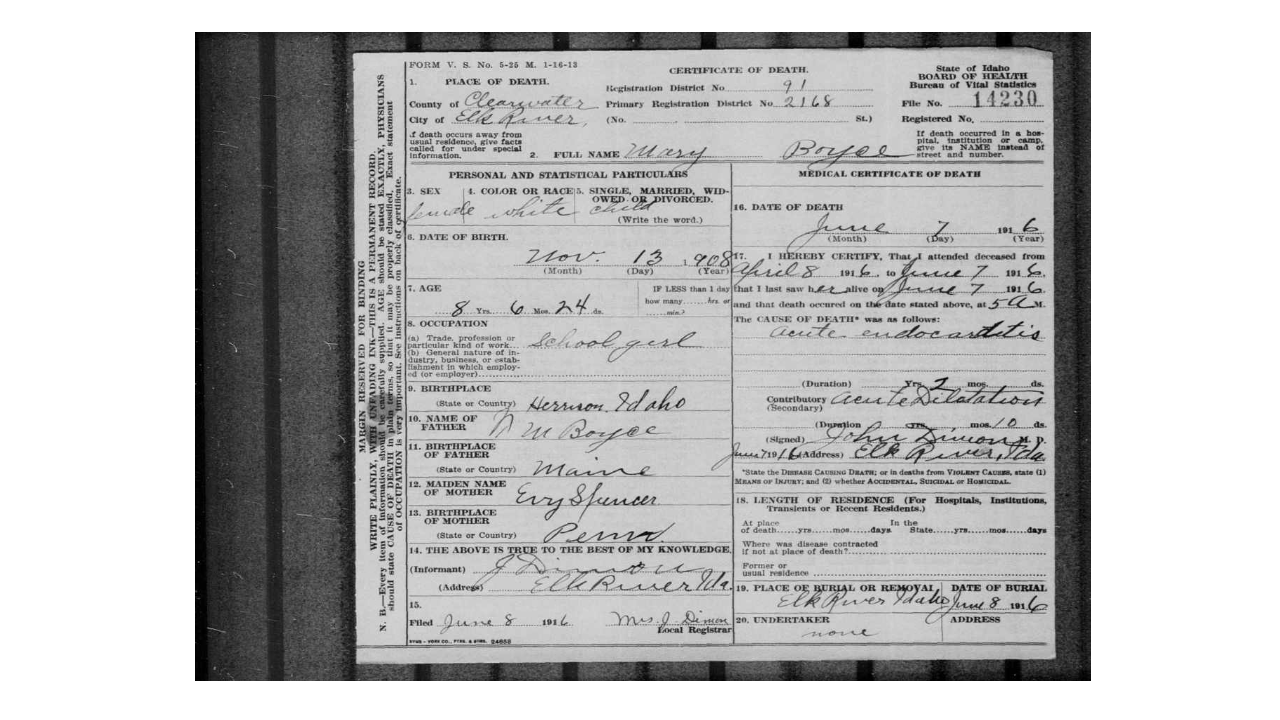 FORM V. S. No. 5-25 M. 1-16-13
CERTIFICATE OF DEATH.
State of Idaho
BOARD OF HEALTH
Bureau of Vital Statistics
File No. 14230
Registered No.
1. PLACE OF DEATH.
Registration District No 91
County of Clearwater
Primary Registration District No 2168
City of Elk River,
(No. St.)
If death occurs away from
usual residence, give facts
called for under special
information.
If death occurred in a hos-
pital, institution or camp,
give its NAME instead of
street and number.
2. FULL NAME Mary Boyce
MARGIN RESERVED FOR BINDING
WRITE PLAINLY, WITH UNFADING INK—THIS IS A PERMANENT RECORD.
N. B.—Every item of information should be carefully supplied. AGE should be stated EXACTLY. PHYSICIANS
should state CAUSE OF DEATH in plain terms, so that it may be properly classified. Exact statement
of OCCUPATION is very important. See instructions on back of certificate.
PERSONAL AND STATISTICAL PARTICULARS
3. SEX 4. COLOR OR RACE 5. SINGLE, MARRIED, WID-
OWED OR DIVORCED.
female white child
(Write the word.)
6. DATE OF BIRTH.
Nov. 13 1908
(Month) (Day) (Year)
7. AGE
IF LESS than 1 day
how many......hrs. or
......min.?
8 Yrs. 6 Mos. 24 ds.
8. OCCUPATION
(a) Trade, profession or
particular kind of work... School girl
(b) General nature of in-
dustry, business, or estab-
lishment in which employ-
ed (or employer)
9. BIRTHPLACE
(State or Country) Herrison, Idaho
10. NAME OF
FATHER M Boyce
11. BIRTHPLACE
OF FATHER
(State or Country) Maine
12. MAIDEN NAME
OF MOTHER Evy Spencer
13. BIRTHPLACE
OF MOTHER
(State or Country) Penna.
14. THE ABOVE IS TRUE TO THE BEST OF MY KNOWLEDGE.
(Informant) J Dimon
(Address) Elk River Ida.
15.
Filed June 8 1916 Mrs. J. Dimon
Local Registrar
SYMS - YORK CO., PTRS. & BDRS. 24656
MEDICAL CERTIFICATE OF DEATH
16. DATE OF DEATH
June 7 1916
(Month) (Day) (Year)
17. I HEREBY CERTIFY, That I attended deceased from
April 8 1916, to June 7 1916.
that I last saw her alive on June 7 1916
and that death occured on the date stated above, at 5 A M.
The CAUSE OF DEATH* was as follows:
Acute endocarditis
(Duration) Yrs. 2 mos. ds.
Contributory Acute Dilatation
(Secondary)
(Duration yrs. mos. 10 ds.
(Signed) John Dimon M. D.
June 7 1916 (Address) Elk River, Ida
*State the DISEASE CAUSING DEATH; or in deaths from VIOLENT CAUSES, state (1)
MEANS OF INJURY; and (2) whether ACCIDENTAL, SUICIDAL or HOMICIDAL.
18. LENGTH OF RESIDENCE (For Hospitals, Institutions,
Transients or Recent Residents.)
At place In the
of death......yrs......mos......days State......yrs......mos......days
Where was disease contracted
if not at place of death?
Former or
usual residence
19. PLACE OF BURIAL OR REMOVAL DATE OF BURIAL
Elk River Idaho June 8 1916
20. UNDERTAKER ADDRESS
none